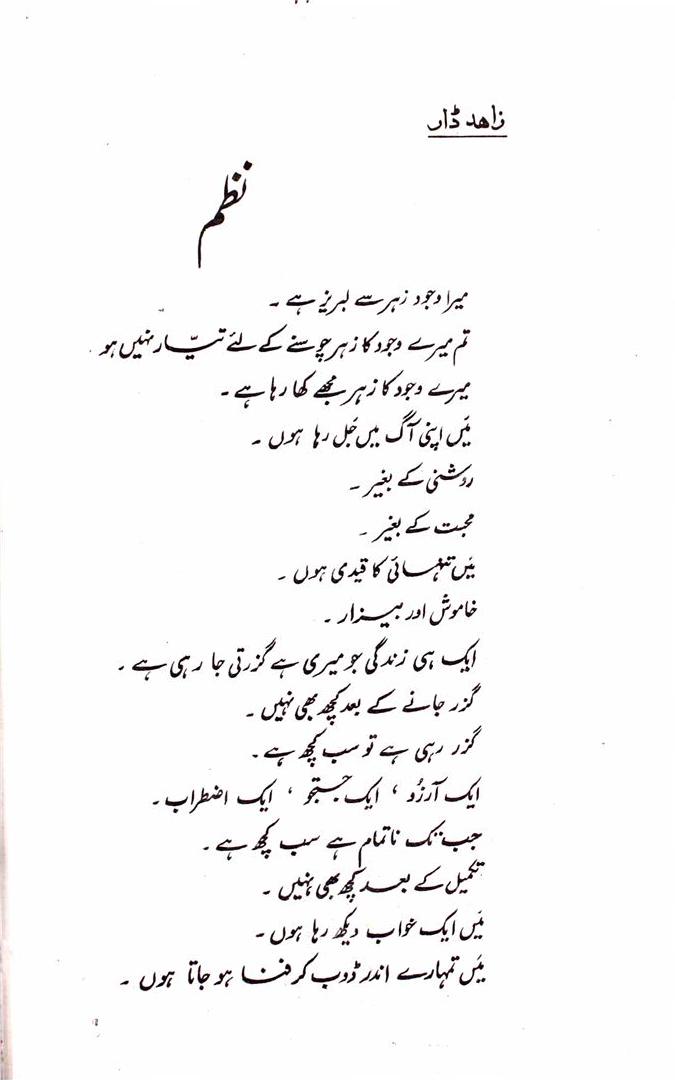 زاهد ڈار
نظم
میرا وجود زہر سے لبریز ہے ۔
تم میرے وجود کا زہر چوسنے کے لئے تیّار نہیں ہو ۔
میرے وجود کا زہر مجھے کھا رہا ہے ۔
مَیں اپنی آگ میں جَل رہا ہوں ۔
روشنی کے بغیر ۔
محبت کے بغیر ۔
مَیں تنہائی کا قیدی ہوں ۔
خاموش اور بیزار ۔
ایک ہی زندگی جو میری ہے گزرتی جا رہی ہے ۔
گزر جانے کے بعد کچھ بھی نہیں ۔
گزر رہی ہے تو سب کچھ ہے ۔
ایک آرزُو ، ایک جستجو ، ایک اضطراب ۔
جب تک ناتمام ہے سب کچھ ہے ۔
تکمیل کے بعد کچھ بھی نہیں ۔
مَیں ایک خواب دیکھ رہا ہوں ۔
مَیں تمہارے اندر ڈوب کر فنا ہو جاتا ہوں ۔